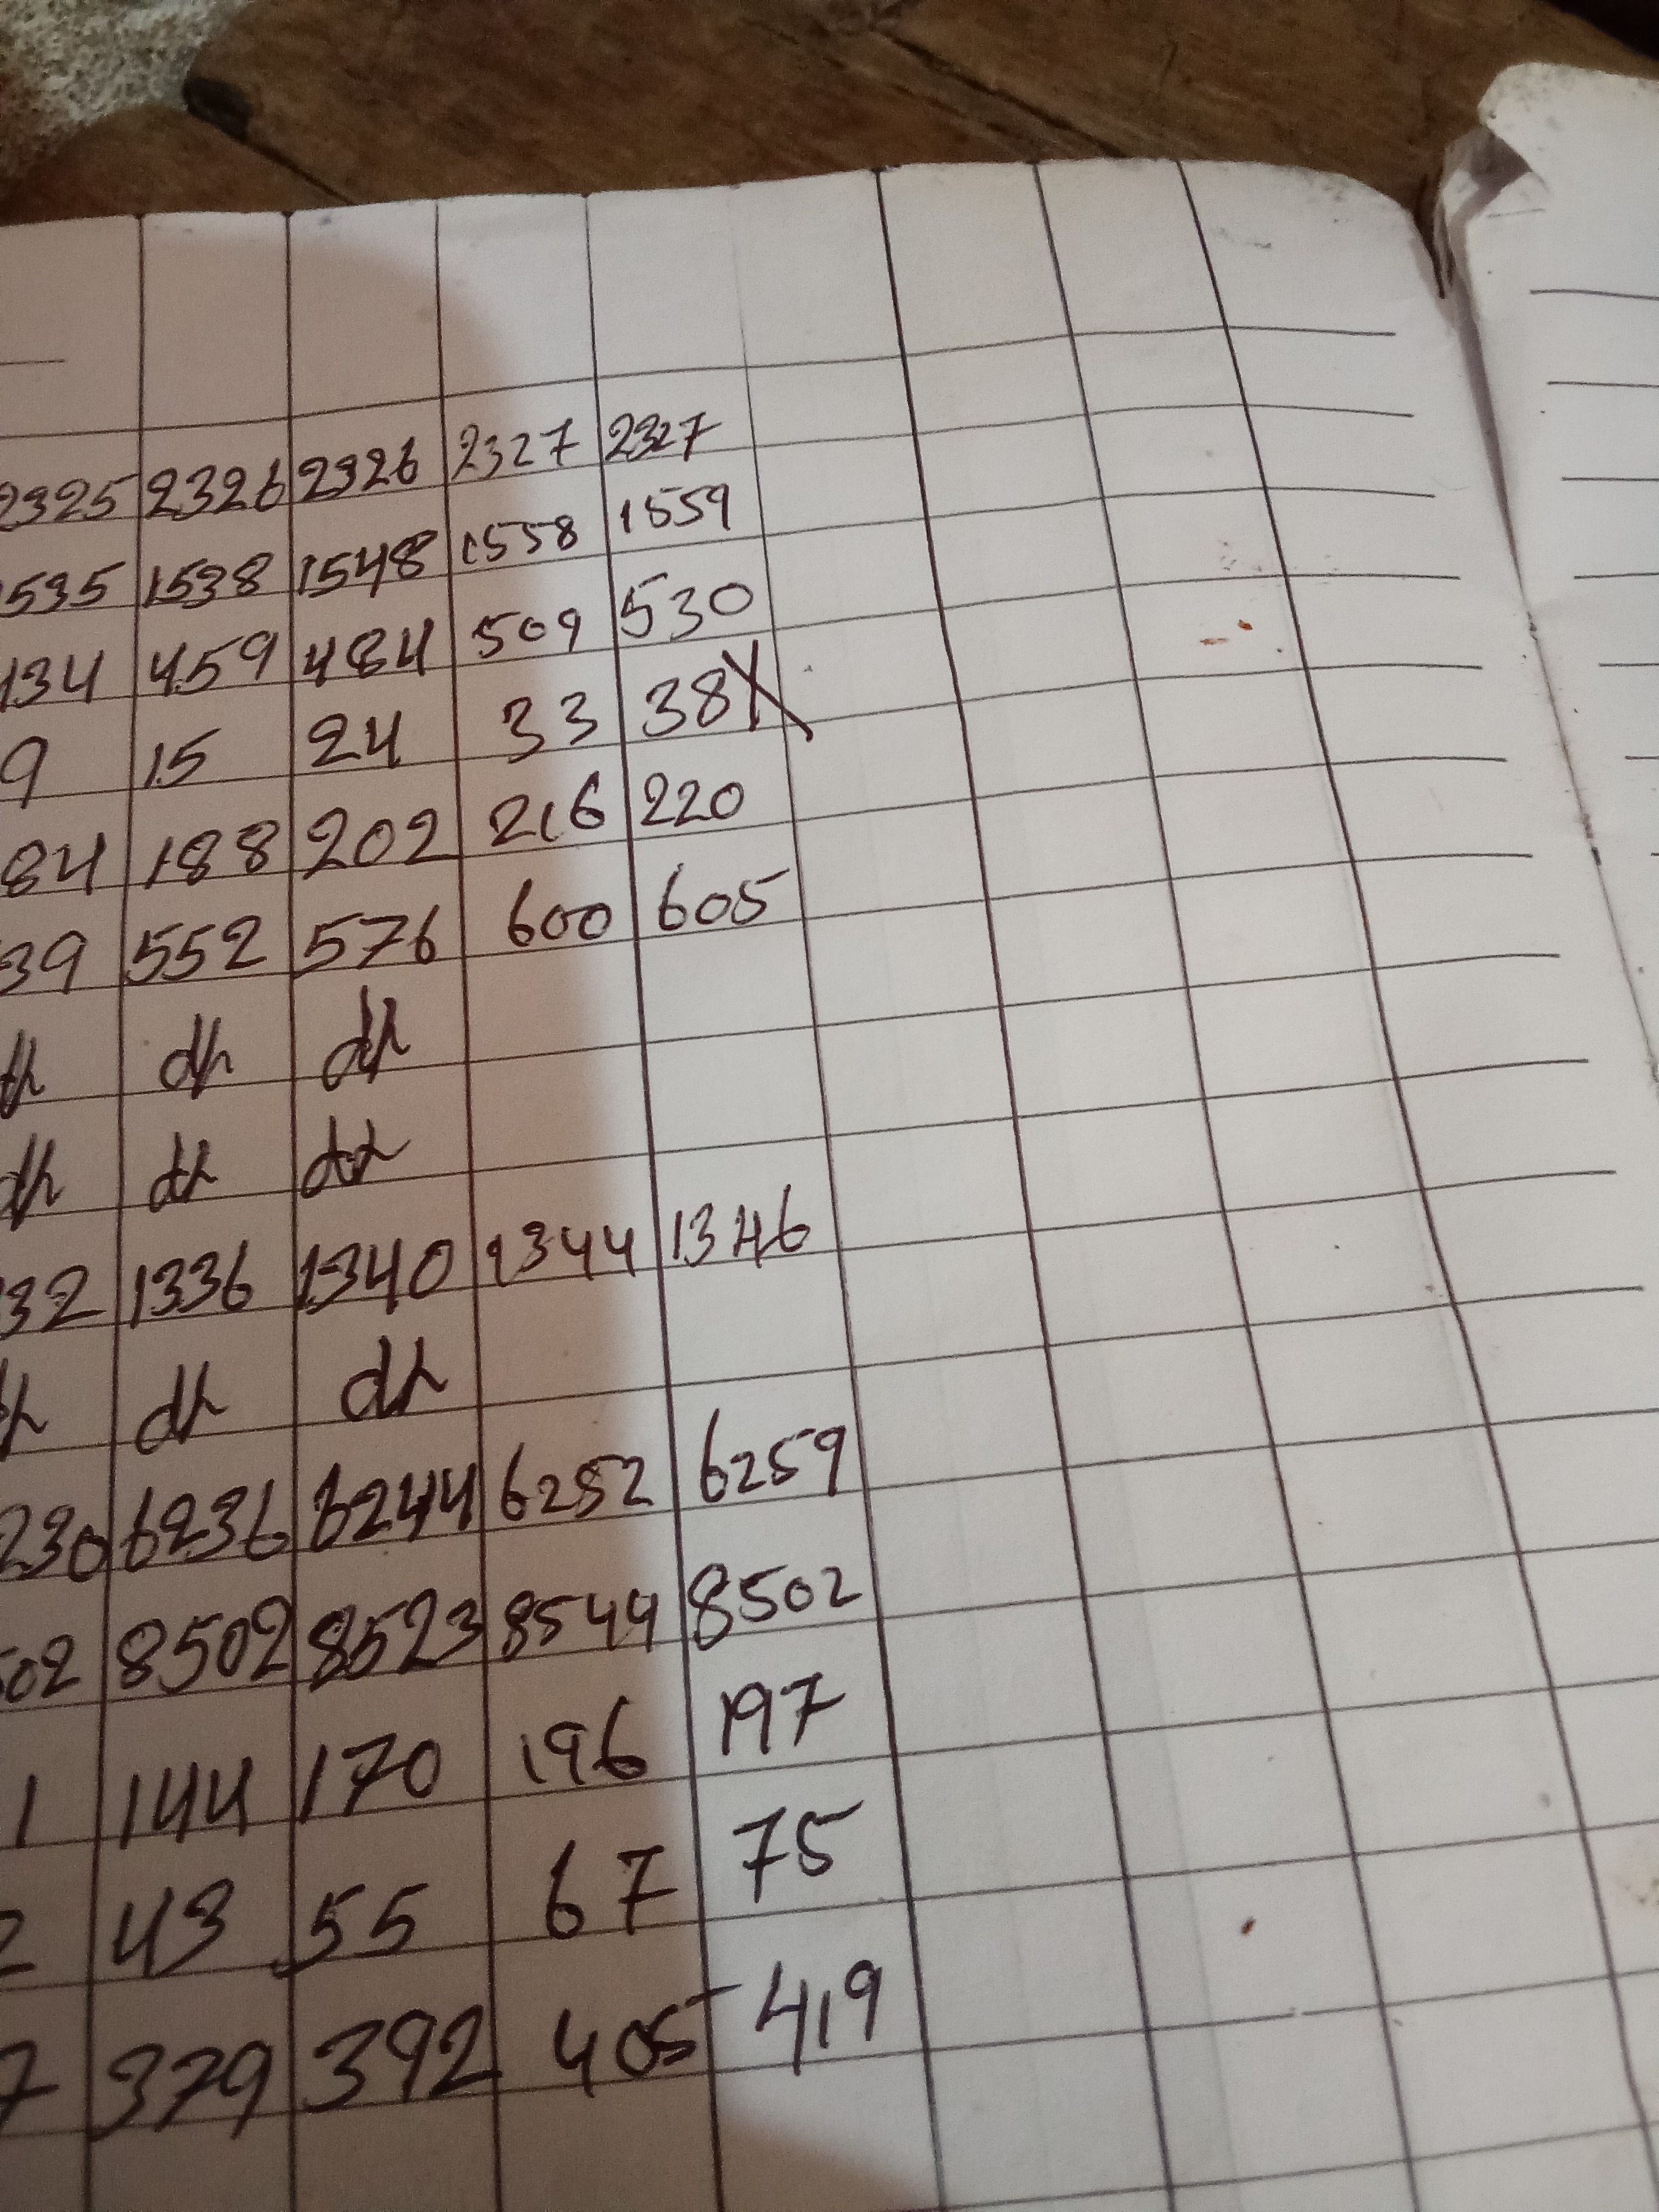 2325 2326 2326 2327 2327
1535 1538 1548 1558 1559
434 459 484 509 530
9 15 24 33 38X
84 188 202 216 220
39 552 576 600 605
dh dh dh
dh dh dh
32 1336 1340 1344 1346
dh dh dh
230 6236 6244 6252 6259
502 8502 8523 8544 8502
1 144 170 196 197
2 43 55 67 75
7 379 392 405 419